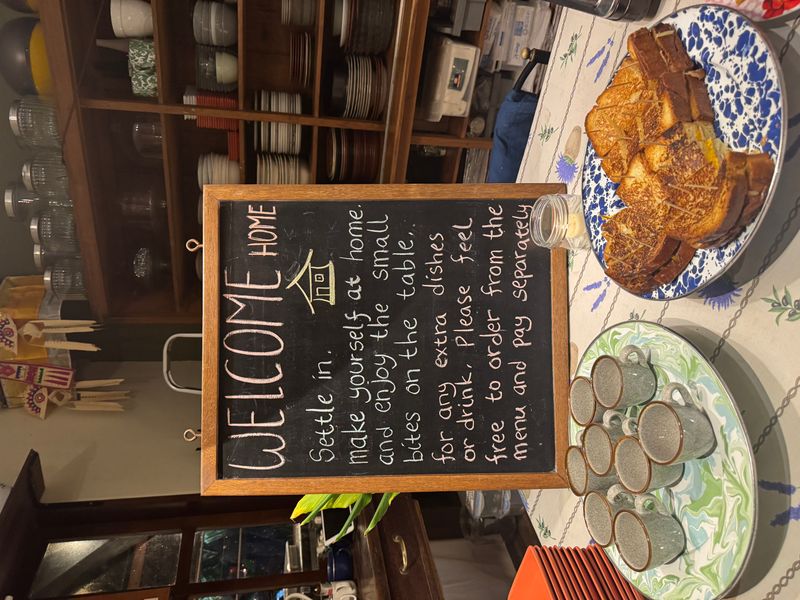 WELCOME HOME
Settle in.
make yourself at home.
and enjoy the small
bites on the table..
for any extra dishes
or drink. Please feel
free to order from the
menu and pay separately